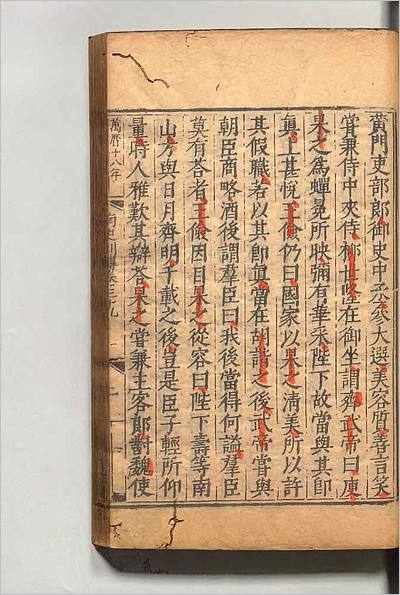 黃門吏部郎御史中丞參大選美容質善言笑
嘗兼侍中夾侍柳世隆在御坐謂齊武帝曰庾
杲之為蟬冕所映彌有華采陛下故當與其即
真上甚悅王儉仍曰國家以杲之清美所以許
其假職若以其即真當在胡諧之後武帝嘗與
朝臣商略酒後謂羣臣曰我後當得何謚羣臣
莫有荅者王儉因目杲之從容曰陛下壽等南
山方與日月齊明千載之後豈是臣子輕所仰
量時人雅歎其辯荅杲之嘗兼主客郎對魏使
萬曆十八年